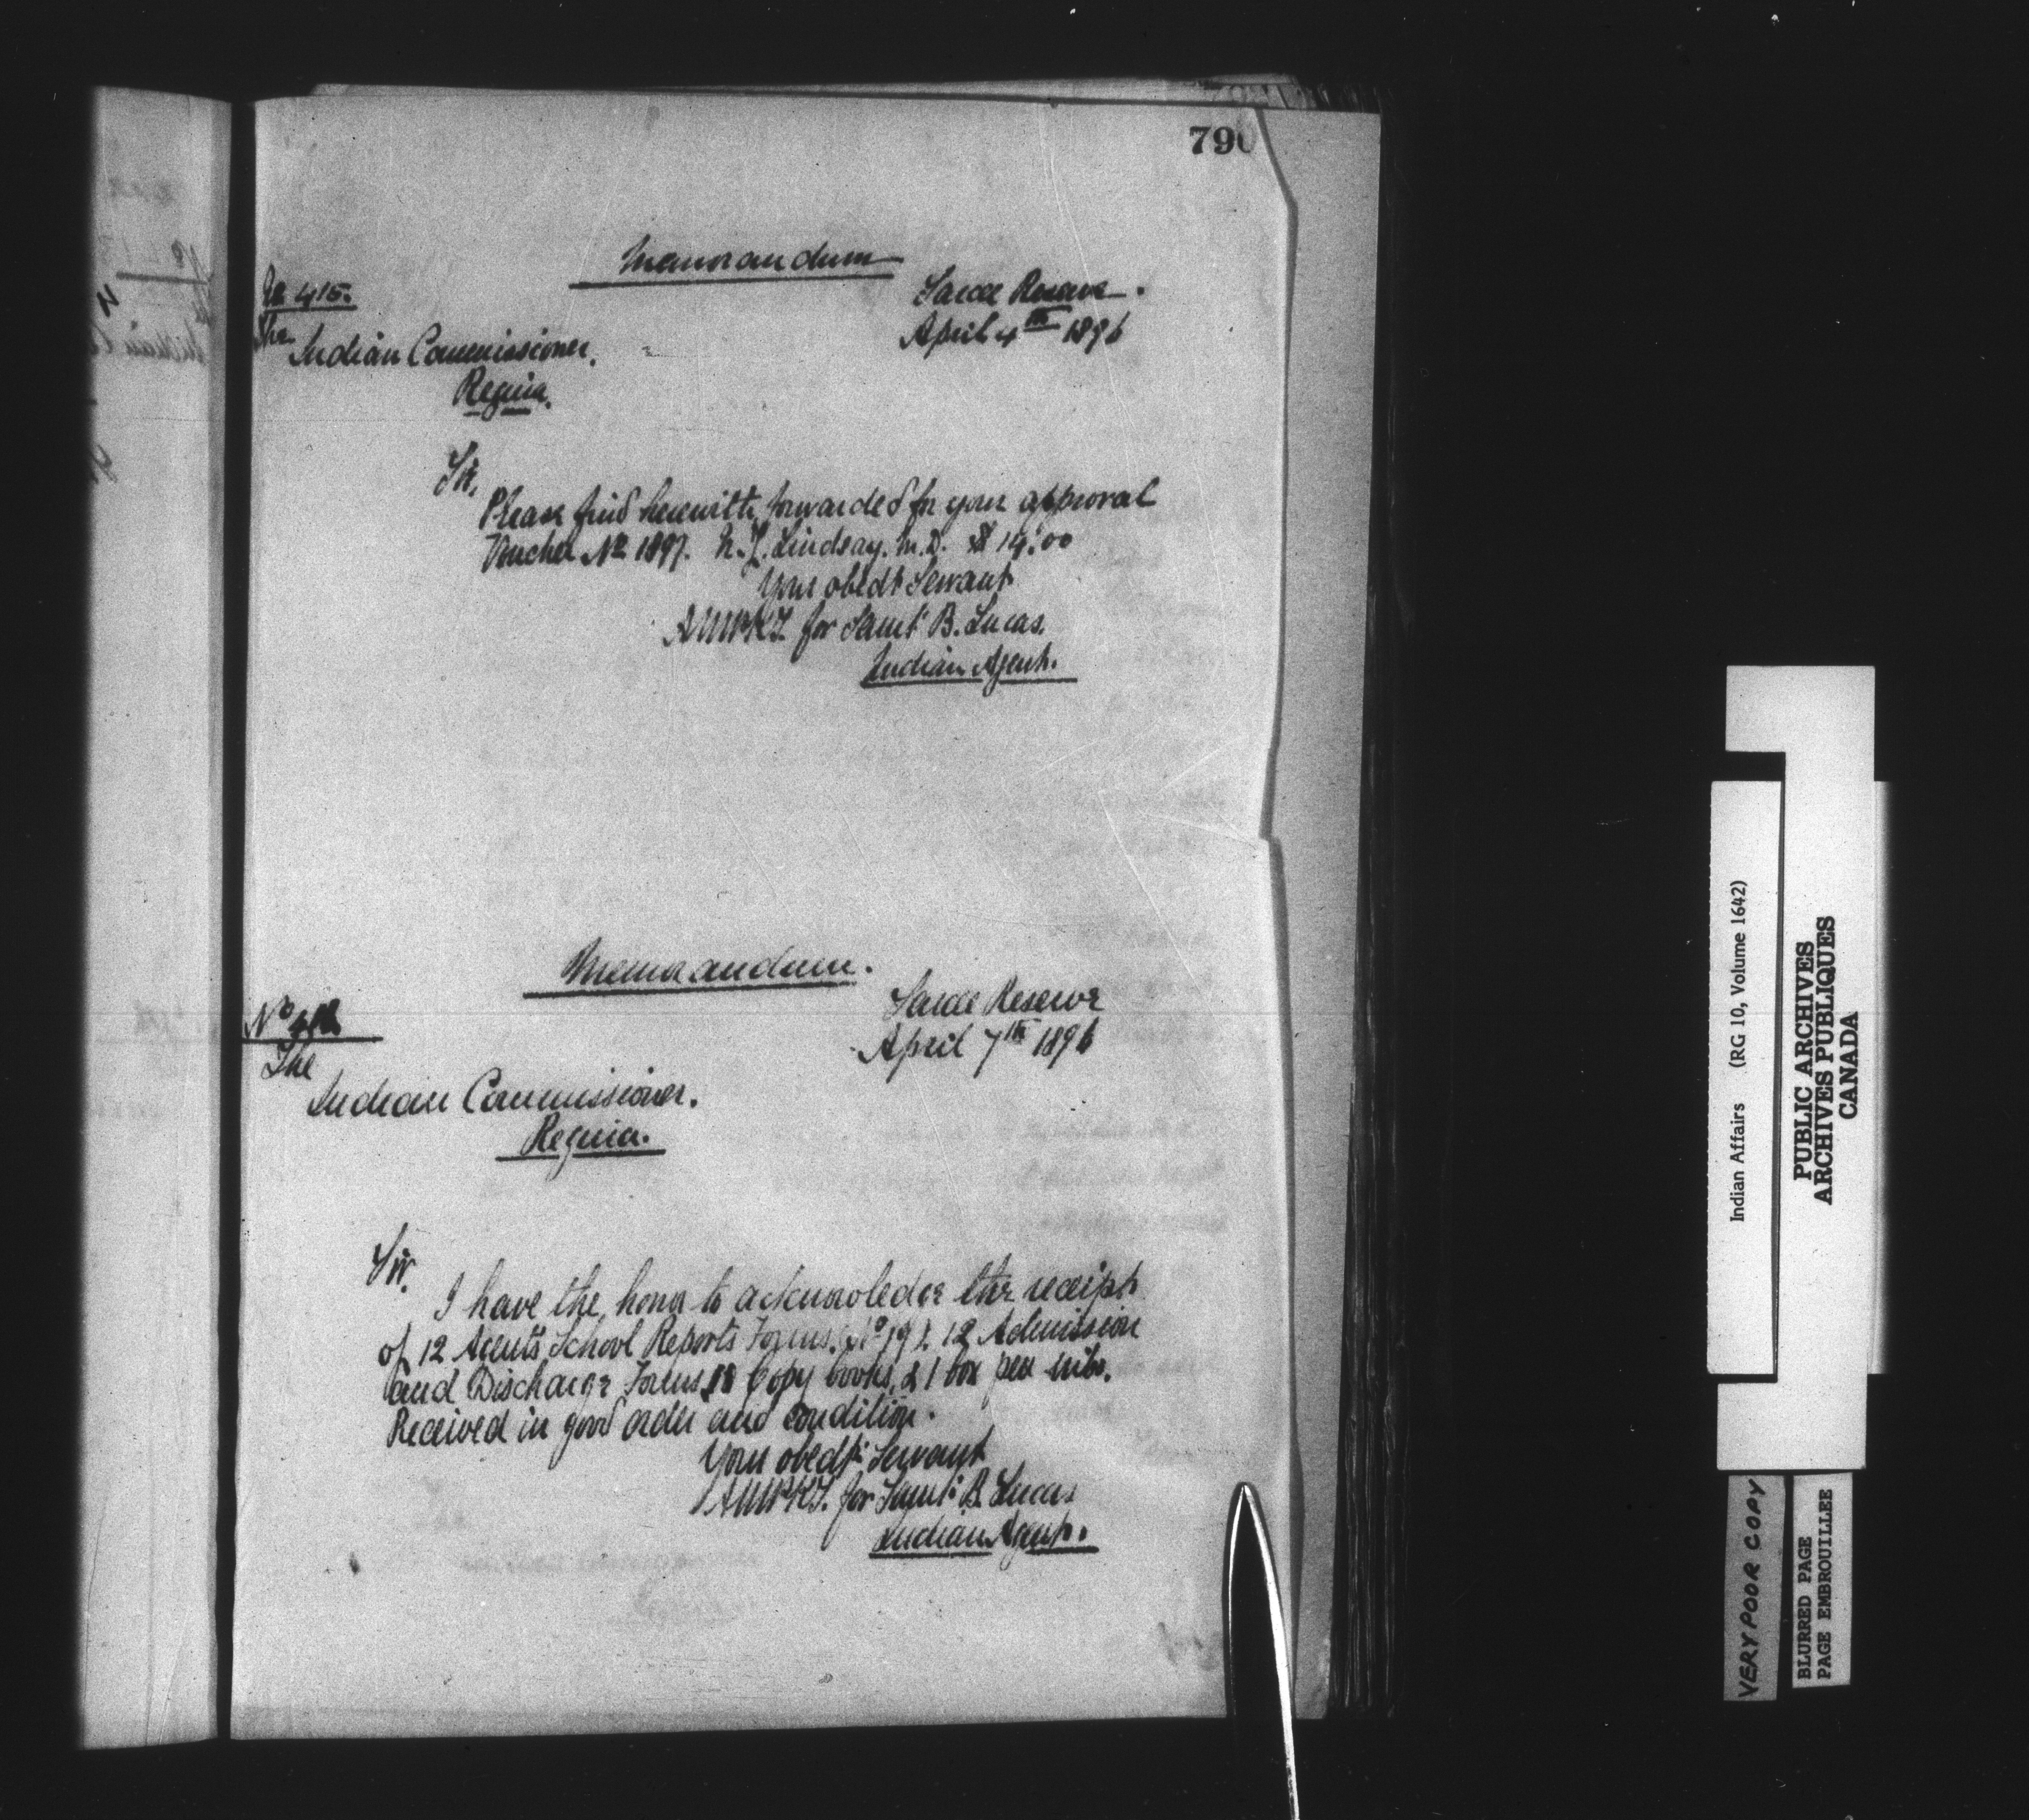 790
Memorandum
No 415.
Sarcee Reserve.
April 4th 1896
The
Indian Commissioner.
Regina.
Sir,
Please find herewith forwarded for your approval
Voucher No 1897. N. J. Lindsay. M.D. $ 14.00
Your obedt Servant
for Saml B. Lucas.
Indian Agent.
Memorandum.
Sarcee Reserve
No
April 7th 1896
The
Indian Commissioner.
Regina.
Sir.
I have the honor to acknowledge the receipt
of 12 Agents School Reports Forms. (No 19). 12 Admission
and Discharge Forms, 18 Copy books, & 1 box pen nibs.
Received in good order and condition.
Your obedt Servant
for Saml B. Lucas
Indian Agent.
Indian Affairs (RG 10, Volume 1642)
PUBLIC ARCHIVES
ARCHIVES PUBLIQUES
CANADA
VERY POOR COPY
BLURRED PAGE
PAGE EMBROUILLEE